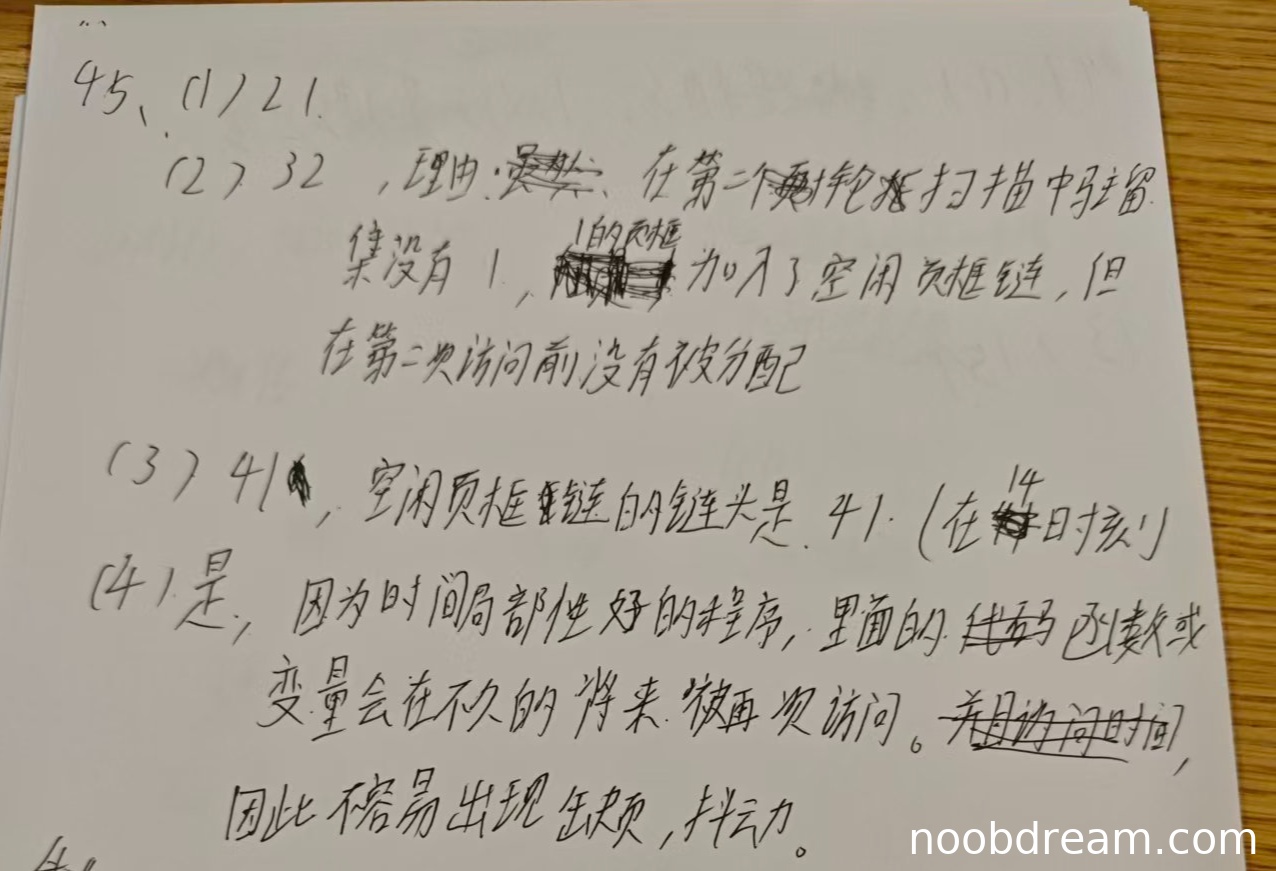 45、(1) 21.
(2) 32 ,理由. 在第二个轮扫描中驻留
集没有 1, 1的页框 加入了空闲页框链,但
在第二次访问前没有被分配
(3) 41, 空闲页框链的链头是 41. (在14时刻)
(4).是, 因为时间局部性好的程序, 里面的函数或
变量会在不久的将来被再次访问。
因此不容易出现缺页,抖动。
noobdream.com